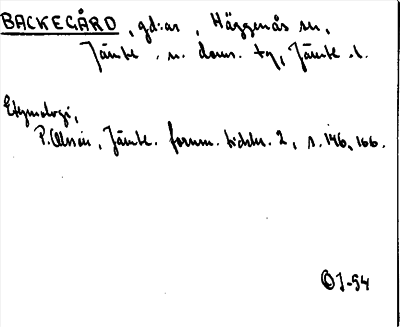 BACKEGÅRD, gd:ar, Häggenås sn,
Jämtl. n. doms. tg, Jämtl. l.
Etymologi,
P. Olsson, Jämtl. fornm. tidskr. 2, s. 146, 166.
ÖJ-54